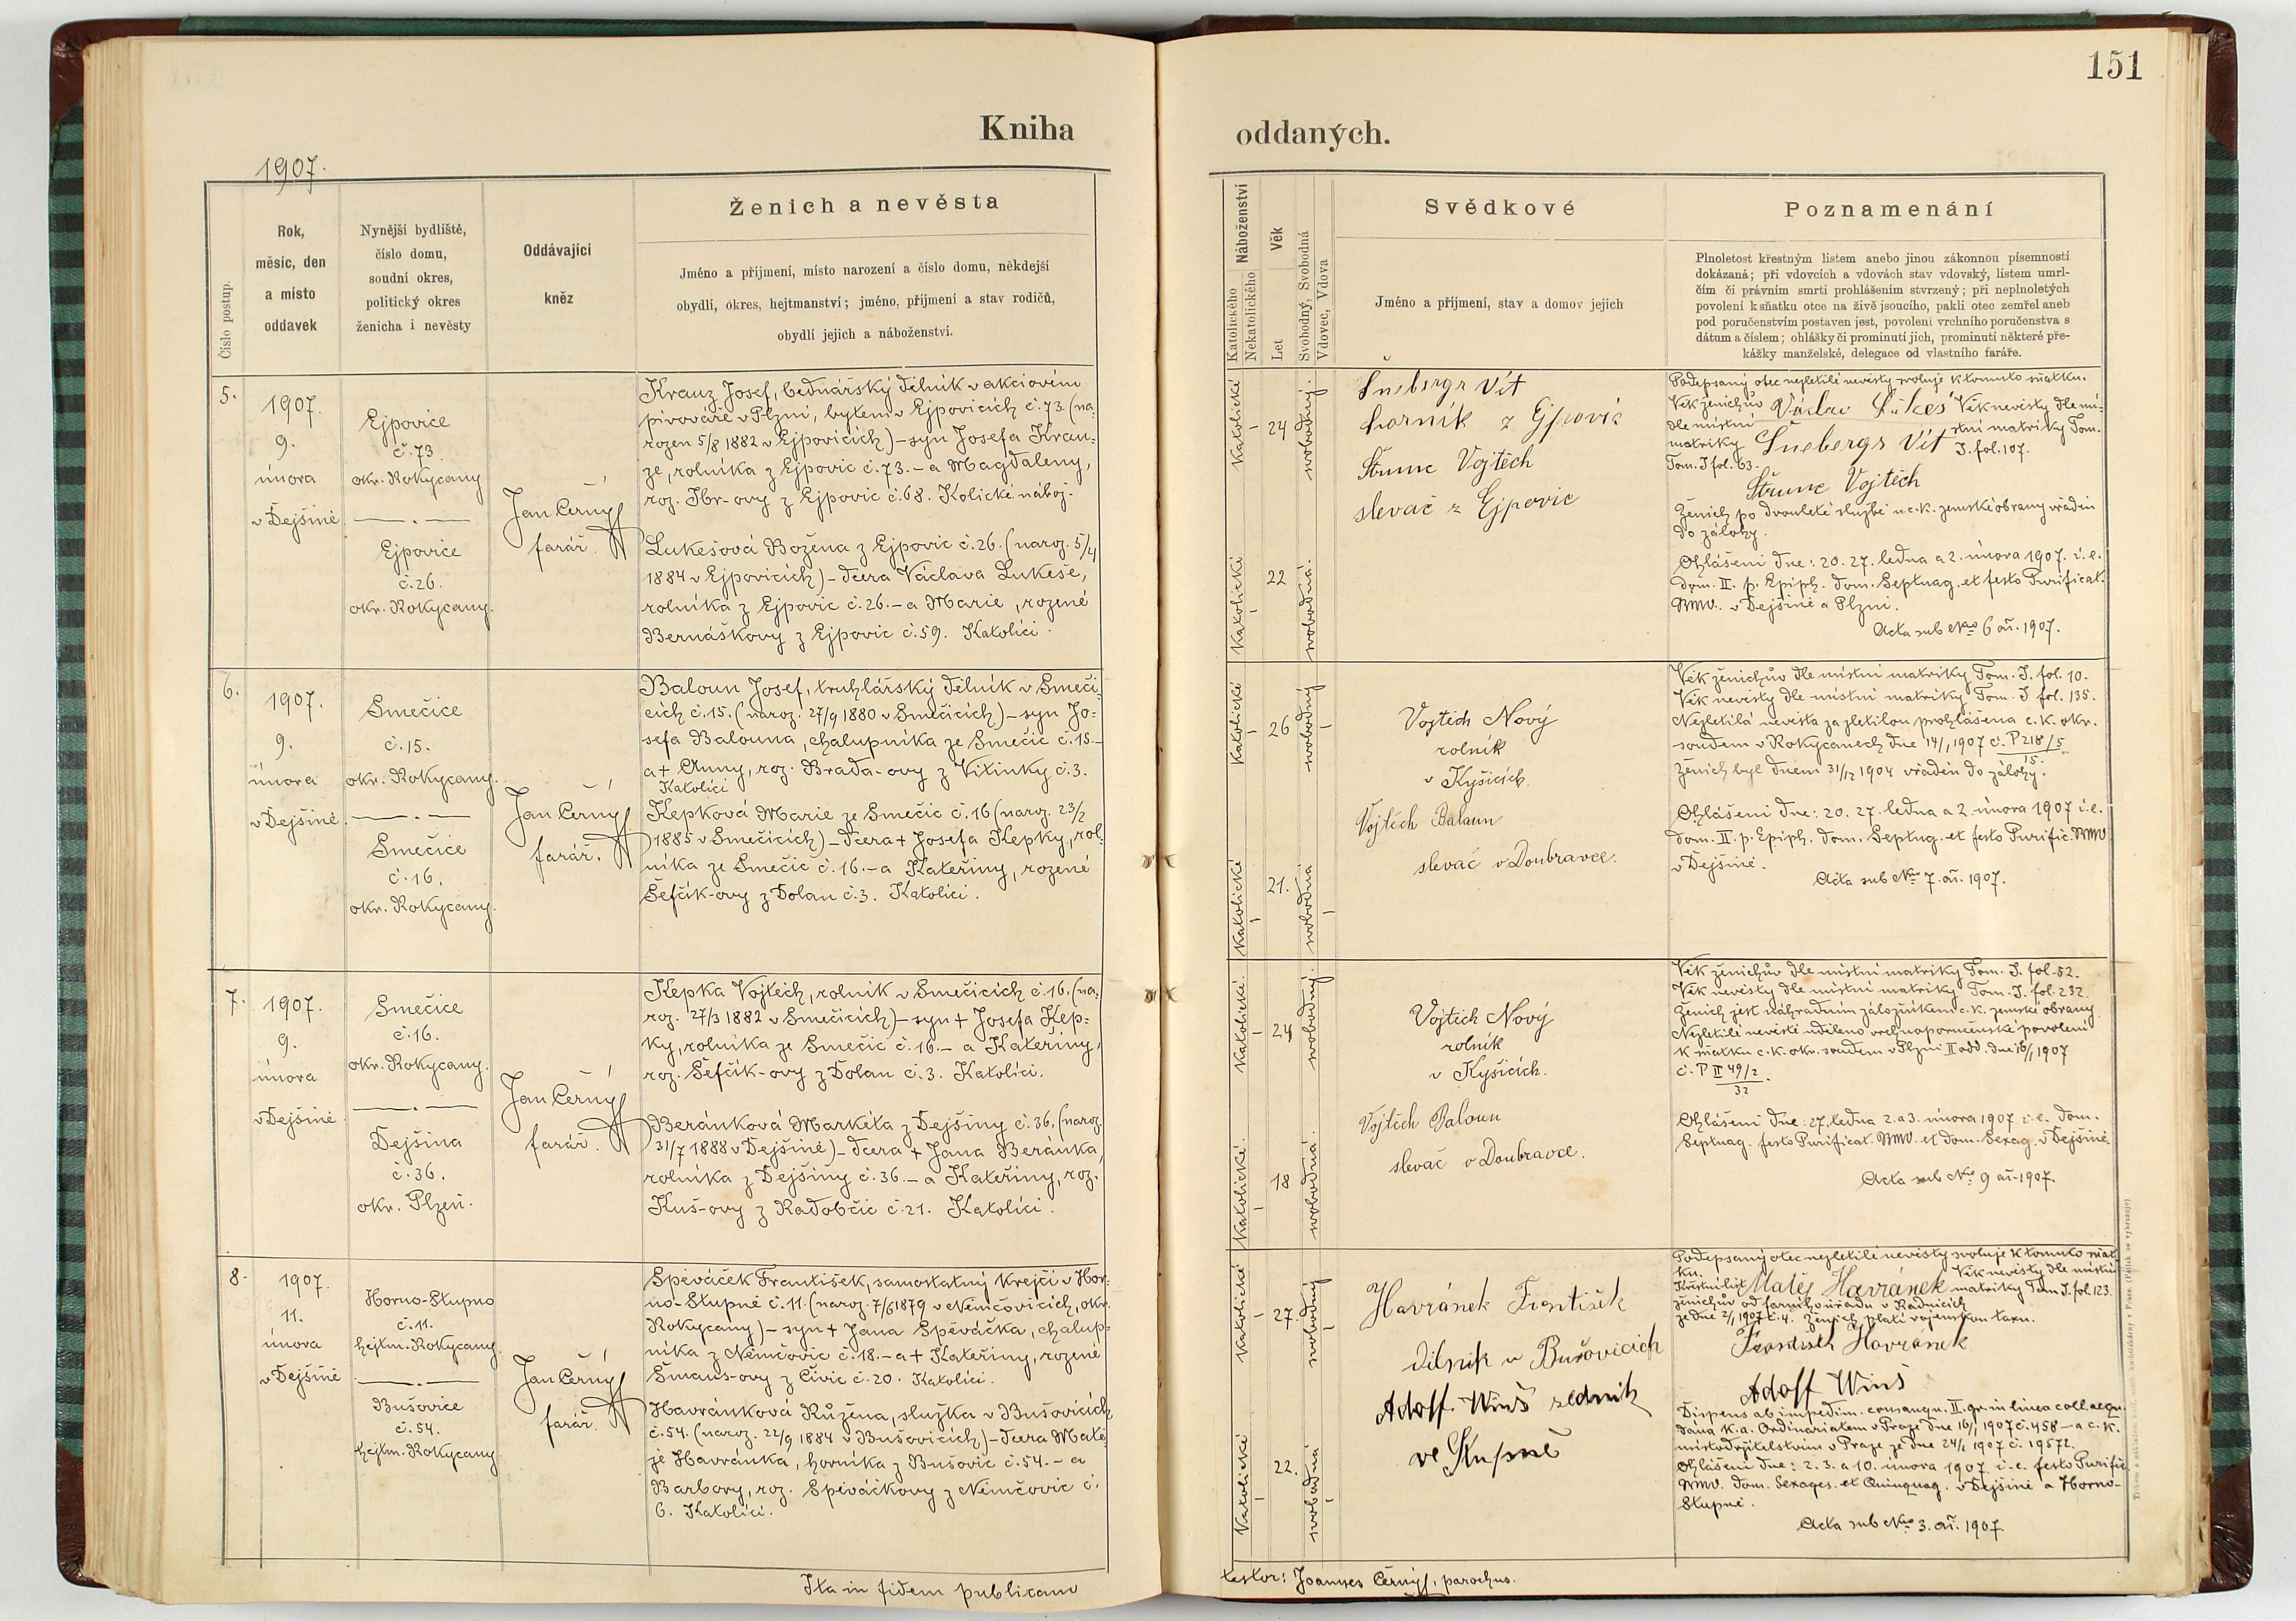 151
Kniha
oddaných.
1907.
Číslo postup.
Rok,
měsíc, den
a místo
oddavek
Nynější bydliště,
číslo domu,
soudní okres,
politický okres
ženicha i nevěsty
Oddávající
kněz
Ženich a nevěsta
Jméno a příjmení, místo narození a číslo domu, někdejší
obydlí, okres, hejtmanství; jméno, příjmení a stav rodičů,
obydlí jejich a náboženství.
5.
1907.
9.
února
v Dejšině
Ejpovice
č. 73.
okr. Rokycany
Ejpovice
č. 26.
okr. Rokycany.
Jan Černý
farář.
Krauz Josef, bednářský dělník v akciovém
pivovaře v Plzni, bytem v Ejpovicích č. 73. (na-
rozen 5/8 1882 v Ejpovicích) – syn Josefa Krau-
ze, rolníka z Ejpovic č. 73. – a Magdaleny,
roz. -ovy z Ejpovic č. 68. Kolické nábož.
Lukešová Božena z Ejpovic č. 26. (naroz. 5/4
1884 v Ejpovicích) – dcera Václava Lukeše,
rolníka z Ejpovic č. 26. – a Marie, rozené
Bernáškovy z Ejpovic č. 59. Katolíci.
6.
1907.
9.
února
v Dejšině.
Smečice
č. 15.
okr. Rokycany.
Smečice
č. 16.
okr. Rokycany.
Jan Černý
farář.
Baloun Josef, truhlářský dělník v Smeči-
cích č. 15. (naroz. 27/9 1880 v Smečicích) – syn Jo-
sefa Balouna, chalupníka ze Smečic č. 15. –
a + Anny, roz. Brada-ovy z Vitinky č. 3.
Katolíci
Kepková Marie ze Smečic č. 16 (naroz. 23/2
1885 v Smečicích) – dcera + Josefa Kepky, rol-
níka ze Smečic č. 16. – a Kateřiny, rozené
Šefčík-ovy z Dolan č. 3. Katolíci.
7.
1907.
9.
února
v Dejšině
Smečice
č. 16.
okr. Rokycany.
Dejšina
č. 36.
okr. Plzeň.
Jan Černý
farář.
Kepka Vojtěch, rolník v Smečicích č. 16. (na-
roz. 27/3 1882 v Smečicích) – syn + Josefa Kep-
ky, rolníka ze Smečic č. 16. – a Kateřiny,
roz. Šefčík-ovy z Dolan č. 3. Katolíci.
Beránková Markéta z Dejšiny č. 36. (naroz.
31/7 1888 v Dejšině) – dcera + Jana Beránka,
rolníka z Dejšiny č. 36. – a Kateřiny, roz.
Kuš-ovy z Radobčic č. 21. Katolíci.
8.
1907.
11.
února
v Dejšině
Horno-Stupno
č. 11.
hejtm. Rokycany
Bušovice
č. 54.
hejtm. Rokycany
Jan Černý
farář.
Spěváček František, samostatný krejčí v Hor-
no-Stupně č. 11. (naroz. 7/6 1879 v Němčovicích, okr.
Rokycany) – syn + Jana Spěváčka, chalup-
níka z Němčovic č. 18. – a + Kateřiny, rozené
Šmaus-ovy z Čivic č. 20. Katolíci.
Havránková Růžena, služka v Bušovicích
č. 54. (naroz. 22/9 1884 v Bušovicích) – dcera Matě-
je Havránka, horníka z Bušovic č. 54. – a
Barbory, roz. Spěváčkovy z Němčovic č.
6. Katolíci.
Ita in fidem publicam
Náboženství
Katolického
Nekatolického
Věk
Let
Svobodný, Svobodná
Vdovec, Vdova
Svědkové
Jméno a příjmení, stav a domov jejich
Poznamenání
Plnoletost křestným listem anebo jinou zákonnou písemností
dokázaná; při vdovcích a vdovách stav vdovský, listem umrl-
čím či právním smrti prohlášením stvrzený; při neplnoletých
povolení k sňatku otce na živě jsoucího, pakli otec zemřel aneb
pod poručenstvím postaven jest, povolení vrchního poručenstva s
dátum a číslem; ohlášky či prominutí jich, prominutí některé pře-
kážky manželské, delegace od vlastního faráře.
Katolické
24
svobodný.
Katolické
22
svobodná.
Šneberger Vít
horník z Ejpovic
Štrunc Vojtěch
slevač z Ejpovic
Podepsaný otec nezletilé nevěsty svoluje k tomuto sňatku.
Věk ženichův Václav Lukeš Věk nevěsty dle mí-
dle místní stní matriky Tom.
matriky Šneberger Vít I. fol. 107.
Tom. I fol. 63.
Štrunc Vojtěch
Ženich po dvouleté službě u c. k. zemské obrany vřaděn
do zálohy.
Ohlášeni dne: 20. 27. ledna a 2. února 1907. i. e.
dom. II. p. Epiph. dom. Septuag. et festo Purificat.
BMV. v Dejšině a Plzni.
Acta sub Nro 6 an. 1907.
Katolické
26
svobodný
Katolické
21.
svobodná
Vojtěch Nový
rolník
v Kyšicích.
Vojtěch Baloun
slevač v Doubravce.
Věk ženichův dle místní matriky Tom. I. fol. 10.
Věk nevěsty dle místní matriky Tom. I fol. 135.
Nezletilá nevěsta za zletilou prohlášena c. k. okr.
soudem v Rokycanech dne 14/1 1907 č. P 218/5
15.
Ženich byl dnem 31/12 1904 vřaděn do zálohy.
Ohlášeni dne: 20. 27. ledna a 2. února 1907 i. e.
dom. II. p. Epiph. dom. Septug. et festo Purific. BMV
v Dejšině.
Acta sub Nro 7. an. 1907.
Katolické.
24
svobodný.
Katolické.
18
svobodná.
Vojtěch Nový
rolník
v Kyšicích.
Vojtěch Baloun
slevač v Doubravce.
Věk ženichův dle místní matriky Tom. I. fol. 52.
Věk nevěsty dle místní matriky Tom. I. fol. 232.
Ženich jest náhradním záložníkem c. k. zemské obrany
Nezletilé nevěstě uděleno vrchnoporučenské povolení
k sňatku c. k. okr. soudem v Plzni II odd. dne 16/1 1907
č. P II 49/2
32
Ohlášeni dne: 27. ledna 2. a 3. února 1907 i. e. dom.
Septuag. festo Purificat. BMV. et dom. Sexag. v Dejšině.
Acta sub Nro 9 an. 1907.
Katolické
27.
svobodný
Katolické
22.
svobodná
Havránek František
dělník v Bušovicích
Adolf Winš zedník
ve Stupně
Podepsaný otec nezletilé nevěsty svoluje k tomuto sňat-
ku. Věk nevěsty dle místní
Křestní list Matěj Havránek matriky Tom I. fol. 123.
ženichův od farního úřadu v Radnicích
ze dne 2/1 1907 č. 4. Ženich platí vojenskou taxu.
František Havránek
Adolf Winš
Dispens ab impedim. consangu. II. gr. in linea coll. aequ.
dána k. a. Ordinariatem v Praze dne 16/1 1907 č. 458 – a c. k.
místodržitelstvím v Praze ze dne 24/1 1907 č. 19572.
Ohlášeni dne: 2. 3. a 10. února 1907 i. e. festo Purific
BMV. dom. Sexages. et Quinquag. v Dejšině a Horno-
Stupně.
Acta sub Nro 3. an. 1907
testor: Joannes Černý, parochus.